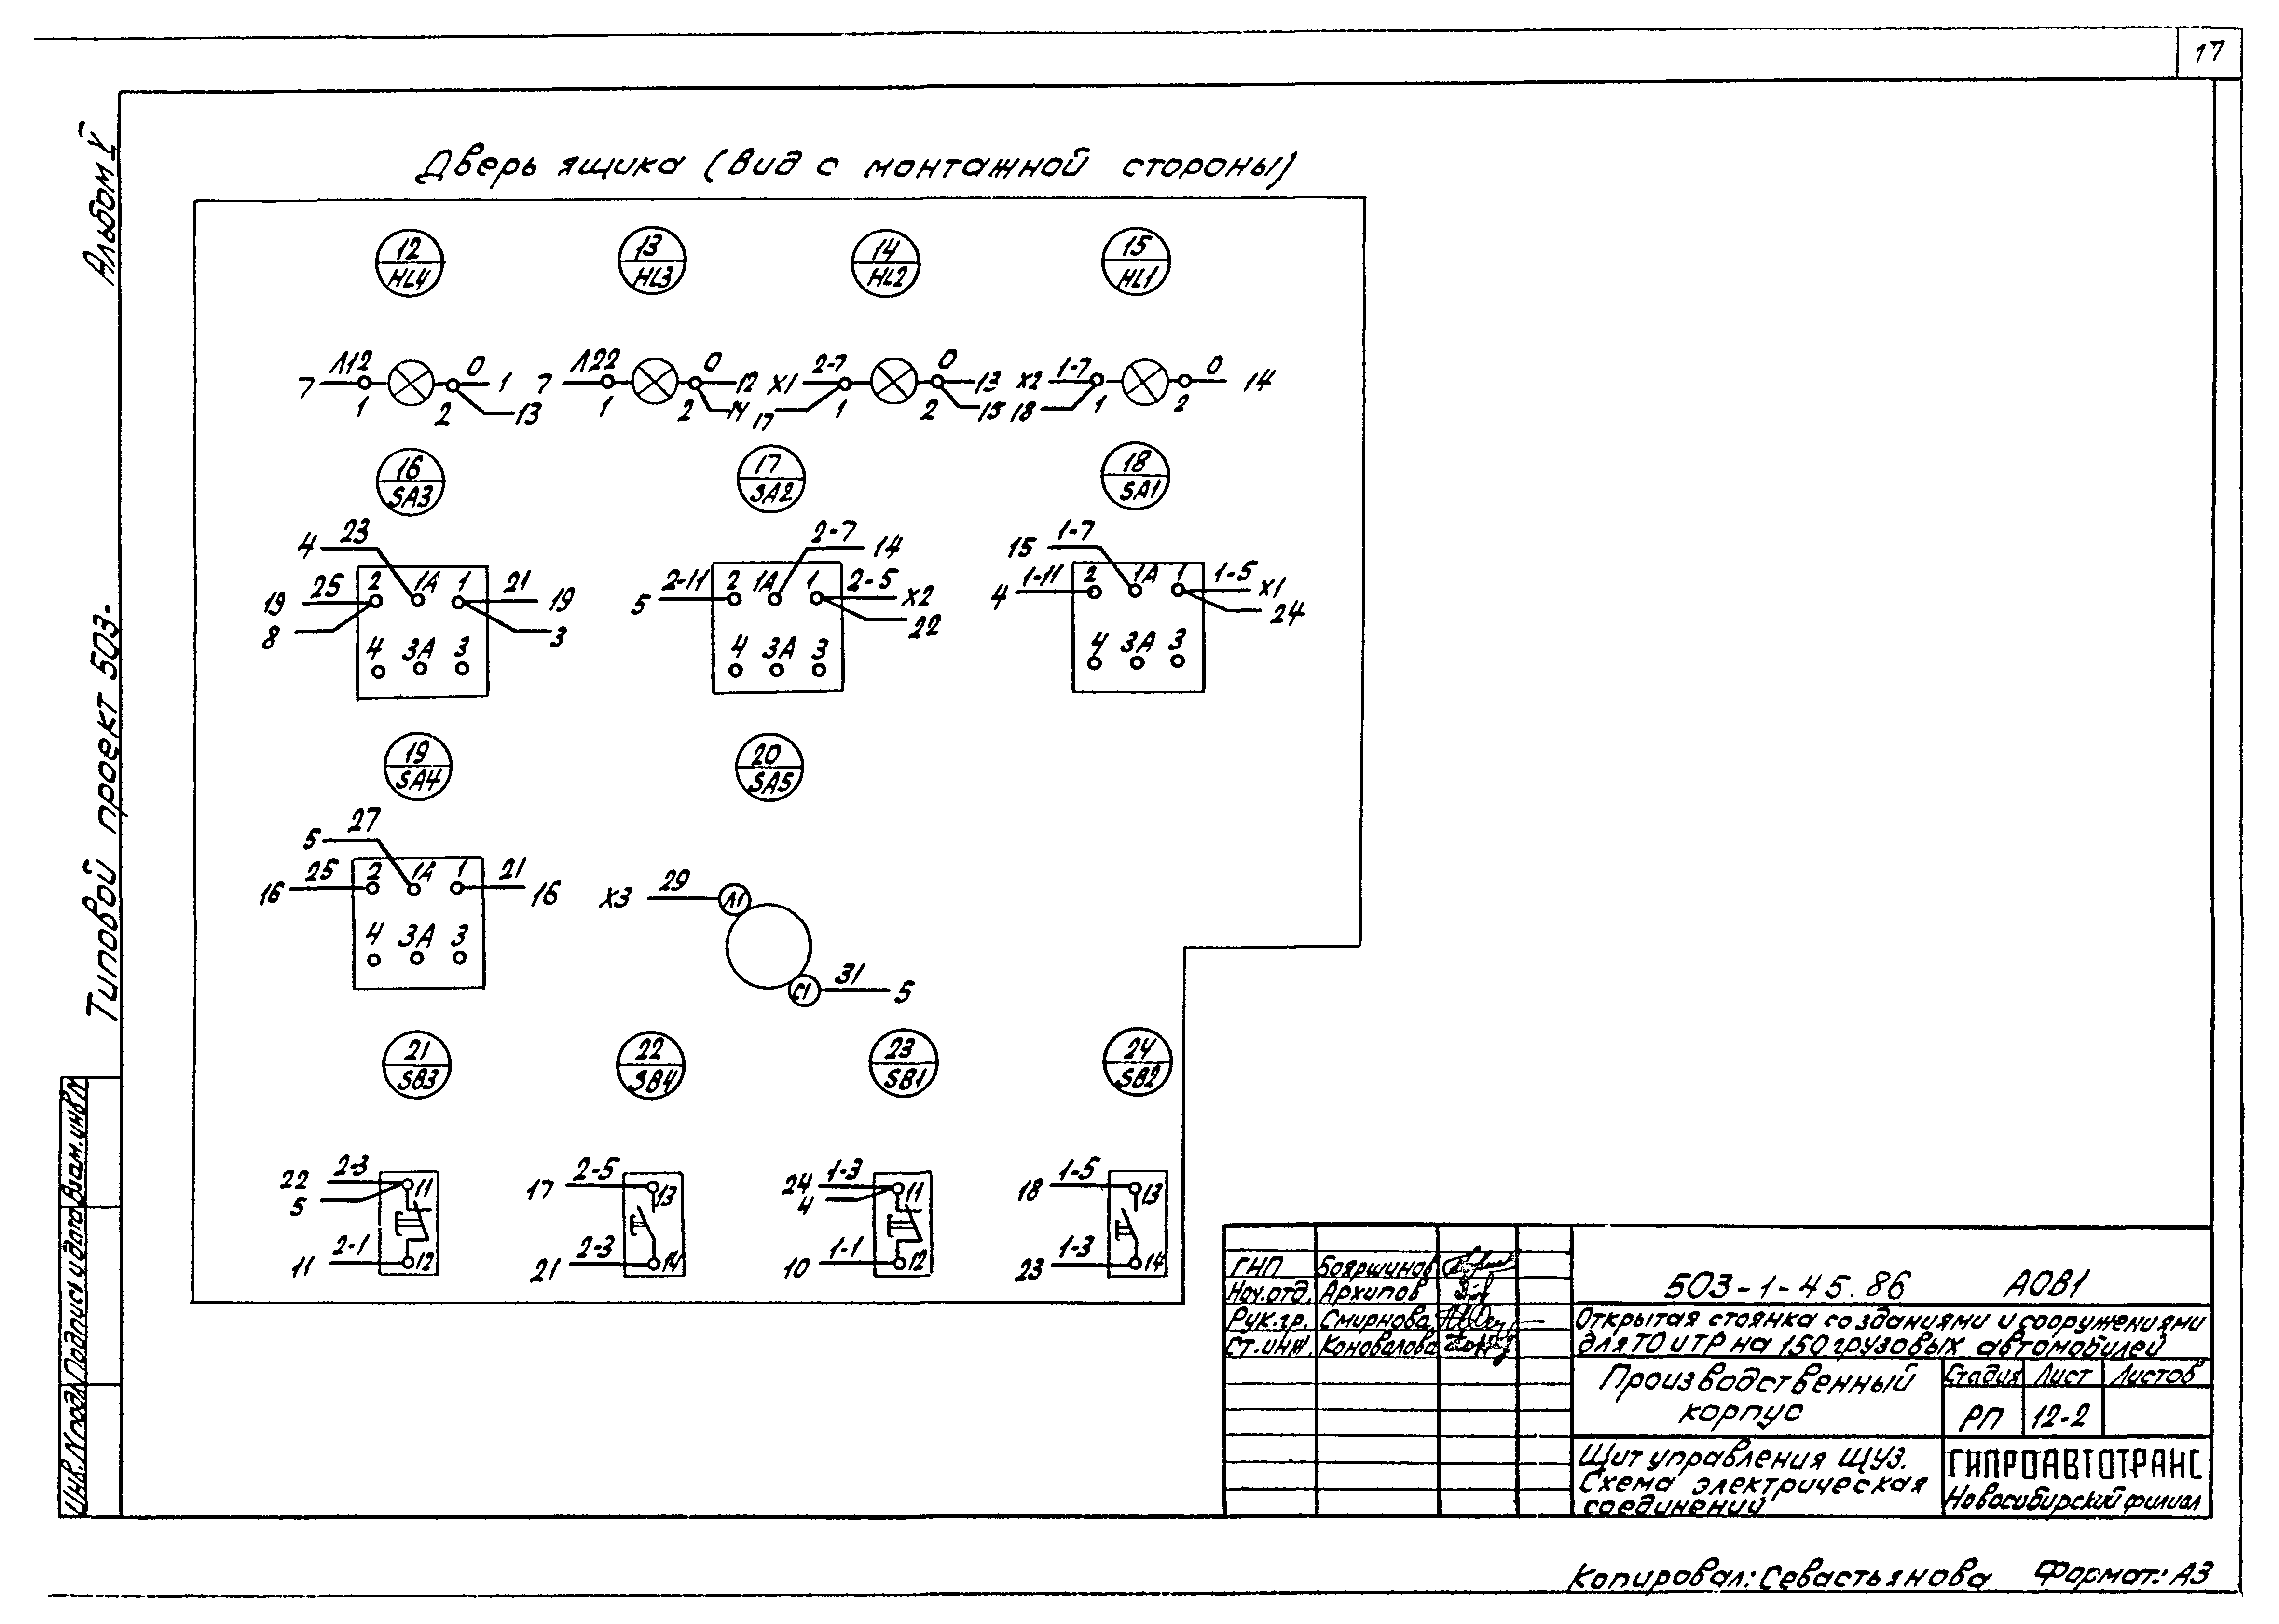 17
Альбом V
Типовой проект 503-
Инв.N подл. Подпись и дата Взам.инв.N
Дверь ящика (вид с монтажной стороны)
12 13 14 15
HL4 HL3 HL2 HL1
7 Л12 0 1 7 Л22 0 12 X1 2-7 0 13 X2 1-7 0 14
1 2 13 1 2 14 17 1 2 15 18 1 2
16 17 18
SA3 SA2 SA1
4 23 2-7 14 15 1-7
19 25 2 1А 1 21 19 5 2-11 2 1А 1 2-5 X2 4 1-11 2 1А 1 1-5 X1
8 3 22 24
4 3А 3 4 3А 3 4 3А 3
19 20
SA4 SA5
5 27
16 25 2 1А 1 21 16 X3 29 Л1
4 3А 3
C1 31 5
21 22 23 24
SB3 SB4 SB1 SB2
22 2-3 11 17 2-5 13 24 1-3 11 18 1-5 13
5 4
11 2-1 12 21 2-3 14 10 1-1 12 23 1-3 14
ГНП Бояршинов
Нач.отд. Архипов
Рук.гр. Смирнова
Ст.инж. Коновалова
503-1-45.86 АОВ1
Открытая стоянка со зданиями и сооружениями
для ТО и ТР на 150 грузовых автомобилей
Производственный
корпус
Стадия Лист Листов
РП 12-2
Щит управления ЩУ3.
Схема электрическая
соединений
ГИПРОАВТОТРАНС
Новосибирский филиал
Копировал: Севастьянова Формат: А3